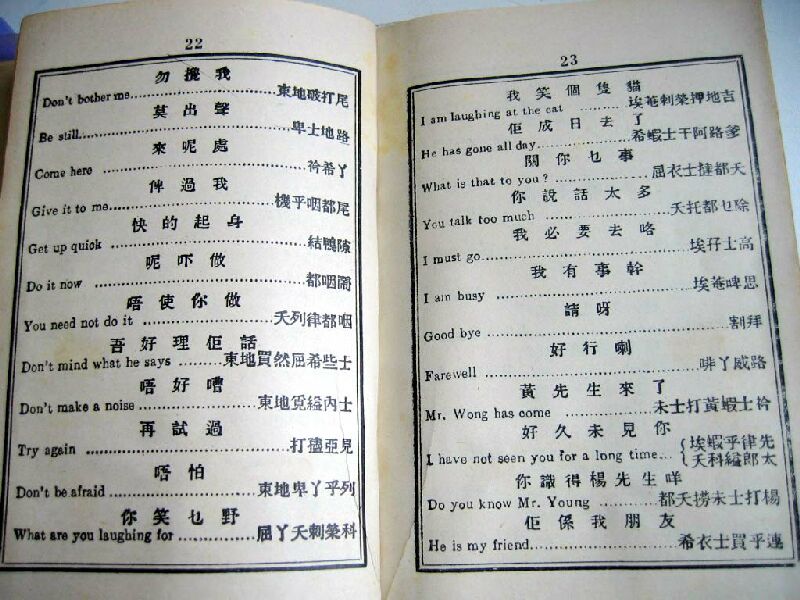 22
勿攪我
Don't bother me....東地破打尾
莫出聲
Be still....卑士地路
來呢處
Come here ....衿希丫
俾過我
Give it to me....機乎咽都尾
快的起身
Get up quick ....結鴨隙
呢吓做
Do it now ....都咽鬧
唔使你做
You need not do it ....夭列律都咽
吾好理佢話
Don't mind what he says ....東地買然屈希些士
唔好嘈
Don't make a noise ....東地覓縊內士
再試過
Try again ....打亞見
唔怕
Don't be afraid ....東地卑丫乎列
你笑乜野
What are you laughing for ....屈丫夭剌榮科
23
我笑個隻貓
I am laughing at the cat ....埃菴剌榮押地吉
佢成日去了
He has gone all day....希士蝦干阿路爹
關你乜事
What is that to you ?....屈衣士撻都夭
你說話太多
You talk too much ....夭托都乜除
我必要去咯
I must go....埃士高
我有事幹
I am busy ....埃菴啤思
請呀
Good bye ....割拜
好行喇
Farewell ....啡丫威路
黃先生來了
Mr. Wong has come ....未士打黃蝦士衿
好久未見你
I have not seen you for a long time... {埃蝦乎律先
夭科縊郎太
你識得楊先生咩
Do you know Mr. Young ....都夭撈未士打楊
佢係我朋友
He is my friend....希士衣買乎連